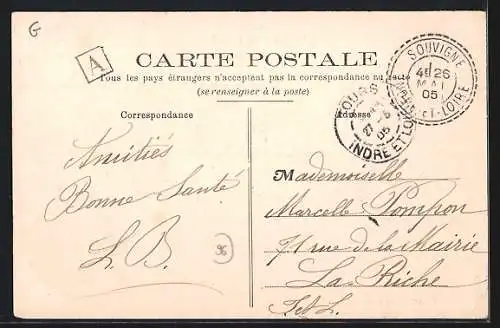 G
A
CARTE POSTALE
Tous les pays étrangers n'acceptent pas la correspondance au recto
(se renseigner à la poste)
SOUVIGNÉ
4E 26
MAI
05
ET-LOIRE
TOURS
27-5
05
INDRE ET LOIRE
Correspondance
Adresse
Amitiés
Bonne Santé
L. B.
36
Mademoiselle
Marcelle Pompon
71 rue de la Mairie
La Riche
I et L.